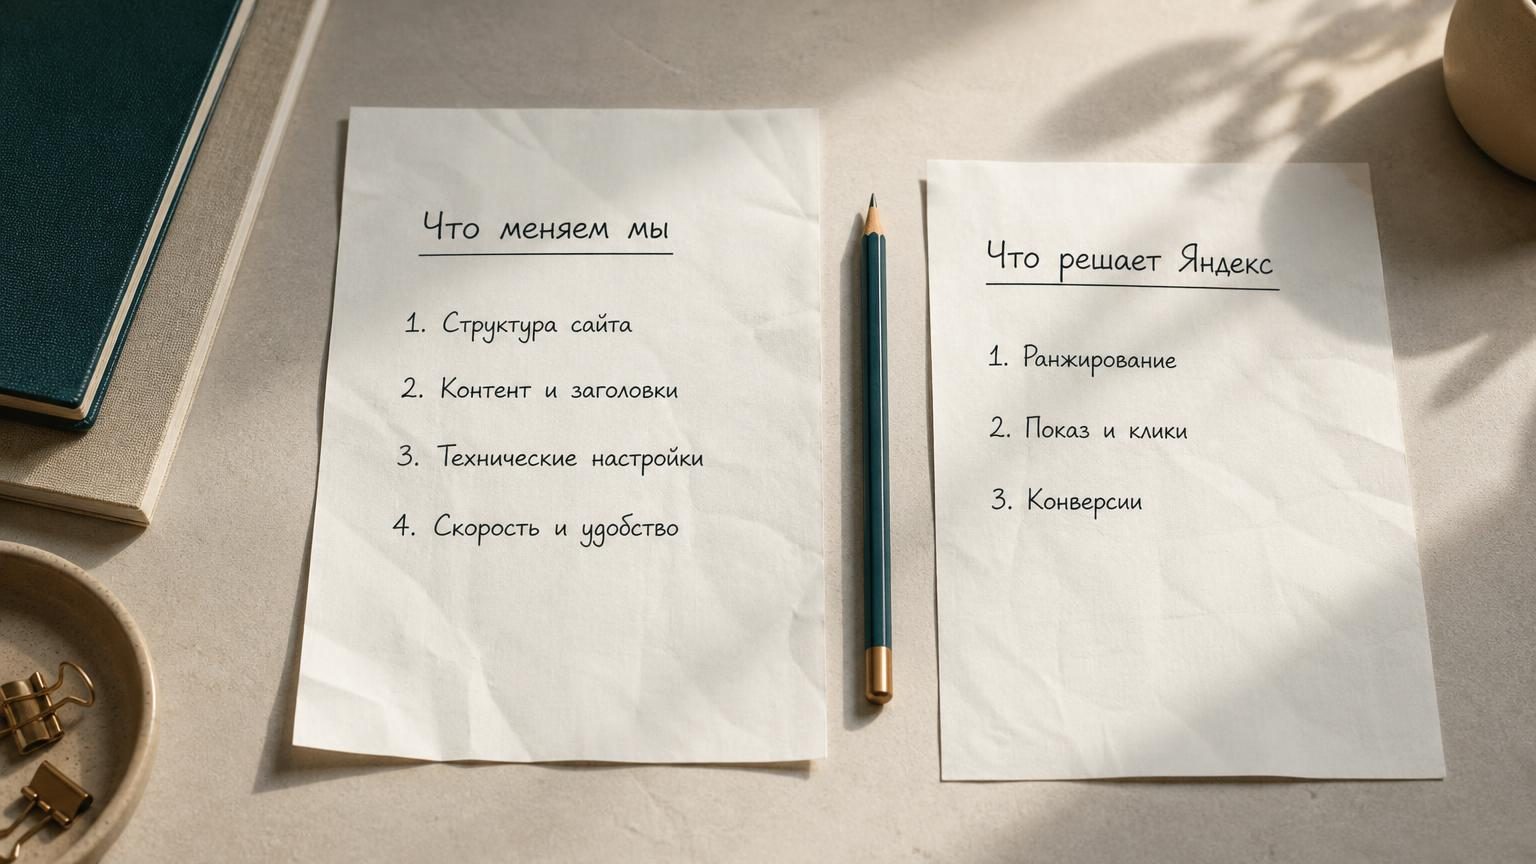 Что меняем мы
1. Структура сайта
2. Контент и заголовки
3. Технические настройки
4. Скорость и удобство
Что решает Яндекс
1. Ранжирование
2. Показ и клики
3. Конверсии